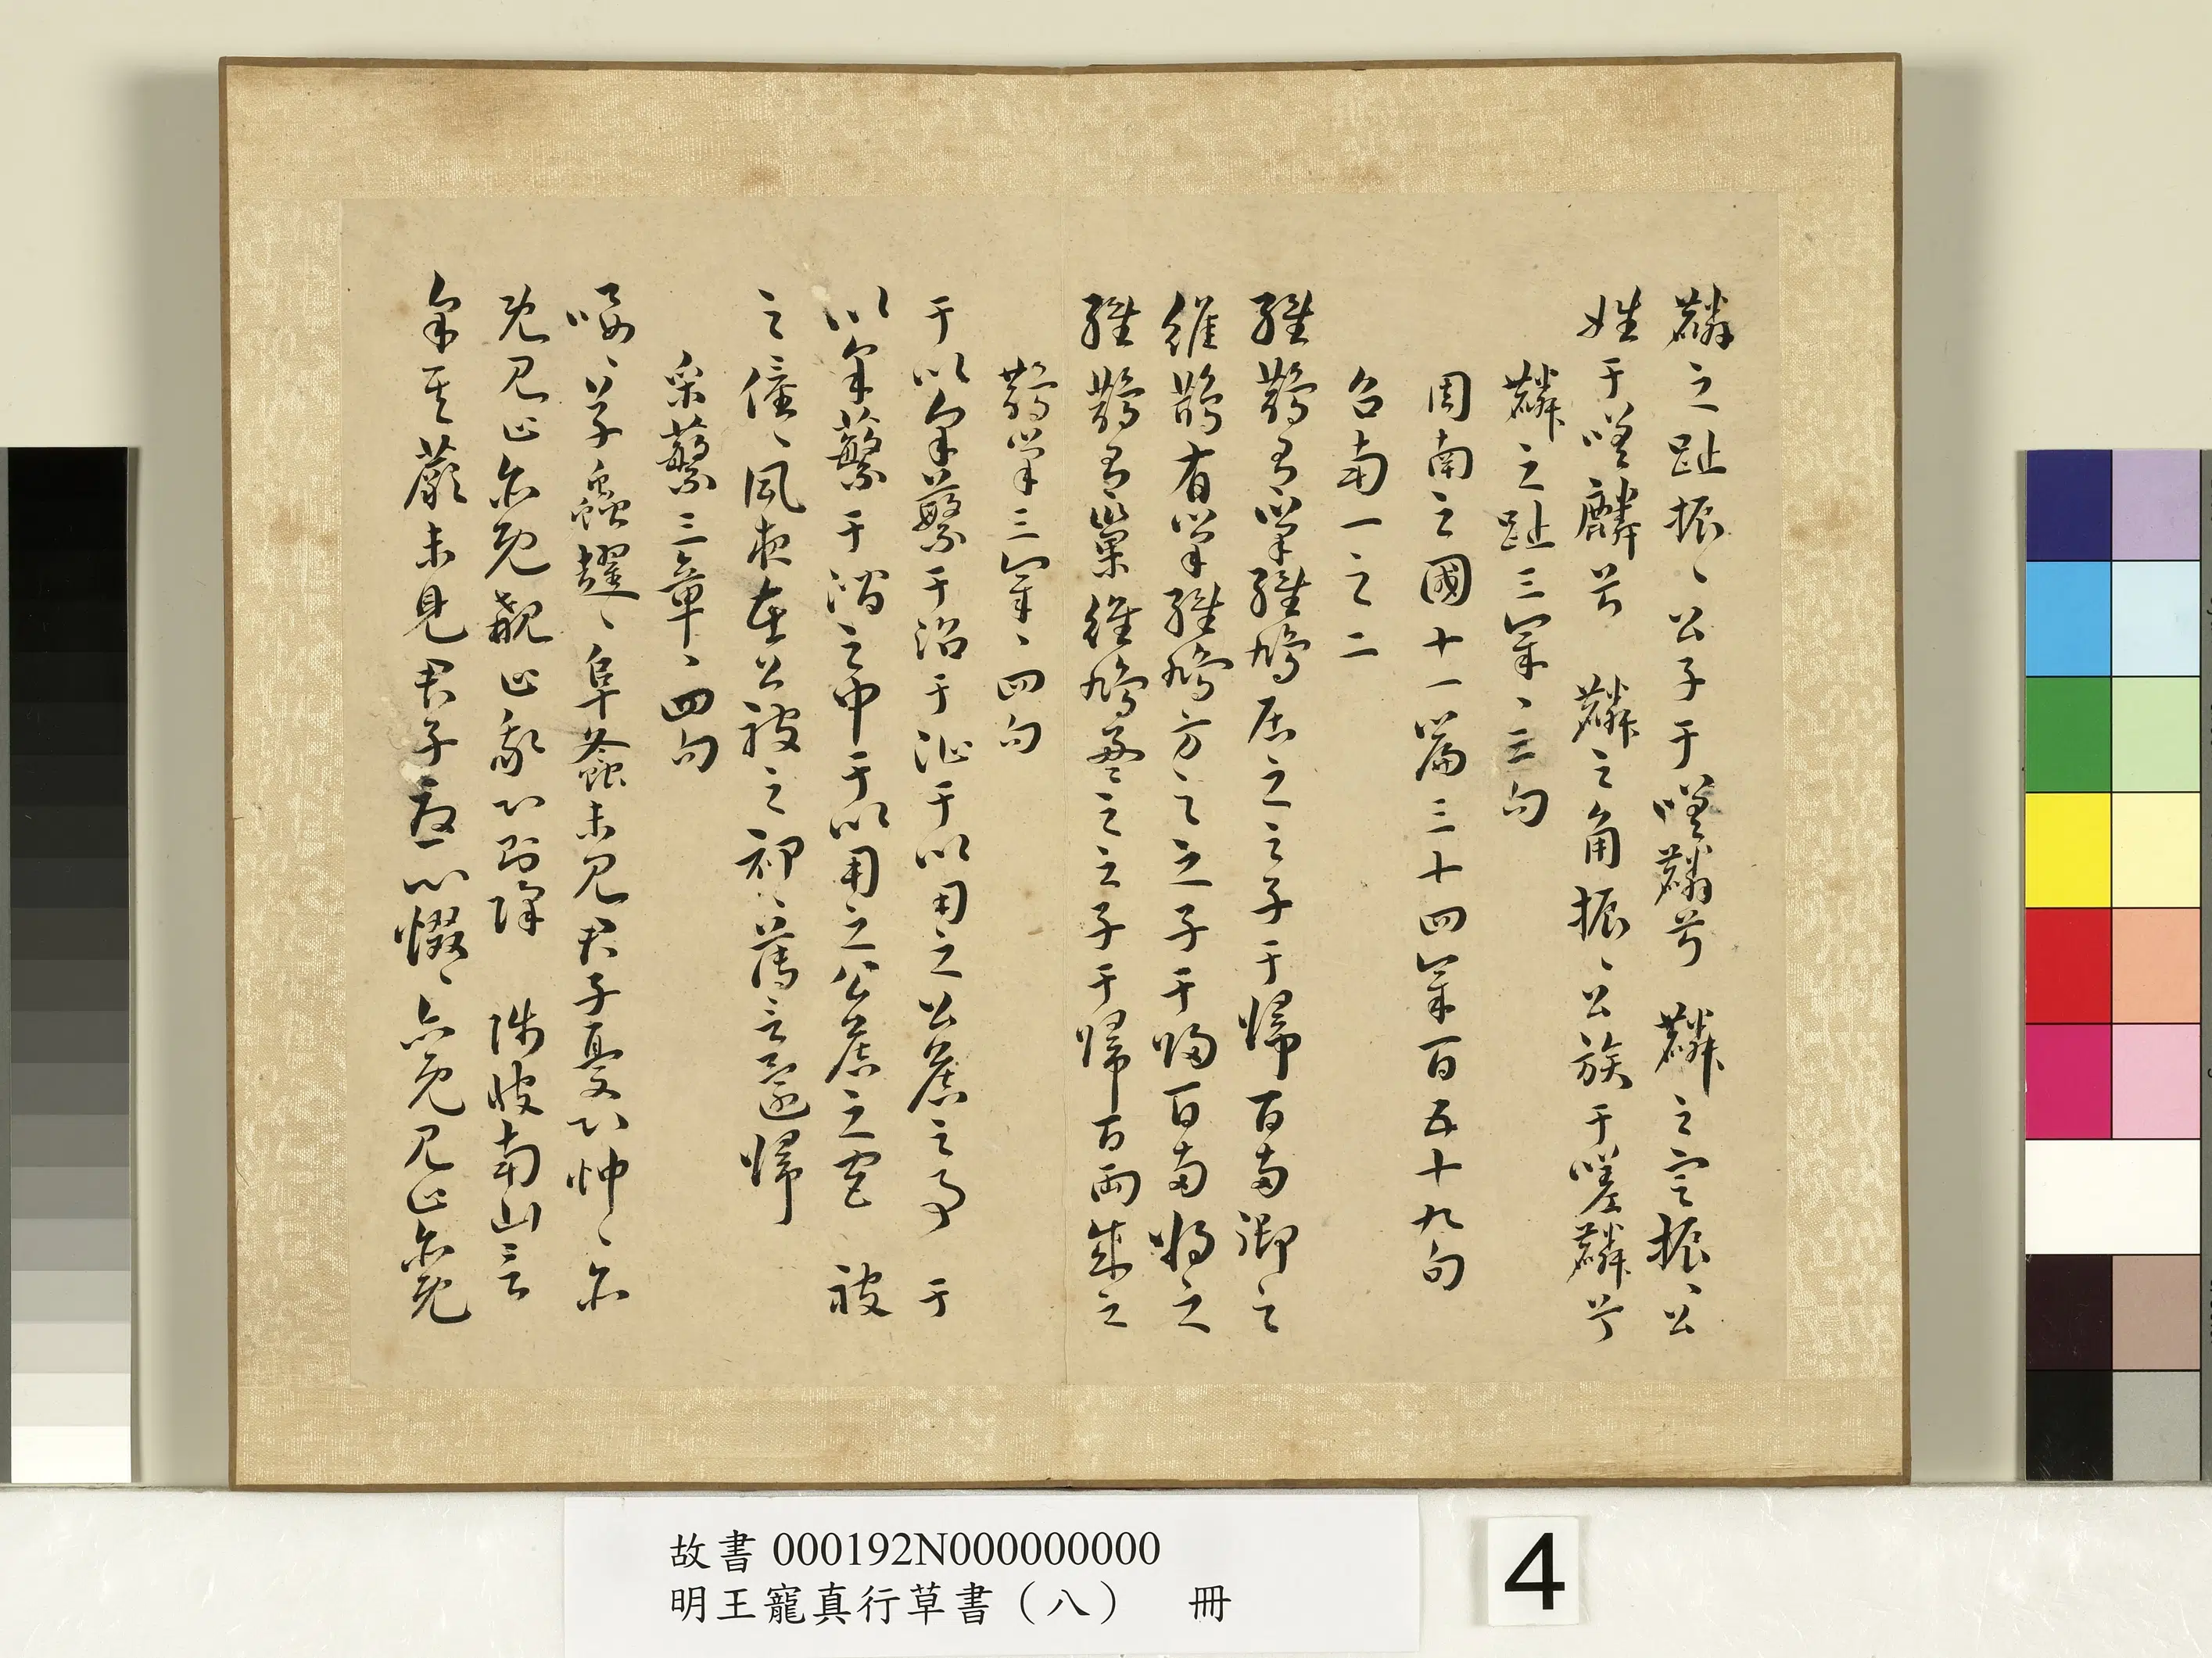 麟之趾振〻公子于嗟麟兮　麟之定振〻公
姓于嗟麟兮　麟之角振〻公族于嗟麟兮
麟之趾三章〻三句
周南之國十一篇三十四章百五十九句
召南一之二
維鵲有巢維鳩居之之子于歸百兩御之
維鵲有巢維鳩方之之子于歸百兩將之
維鵲有巢維鳩盈之之子于歸百兩成之
鵲巢三章〻四句
于以采蘩于沼于沚于以用之公侯之事　于
以采蘩于澗之中于以用之公侯之宮　被
之僮〻夙夜在公被之祁〻薄言還歸
采蘩三章〻四句
喓〻草蟲趯〻阜螽未見君子憂心忡〻亦
既見止亦既覯止我心則降　陟彼南山言
采其蕨未見君子憂心惙〻亦既見止亦既
故書000192N000000000
明王寵真行草書（八）　冊
4